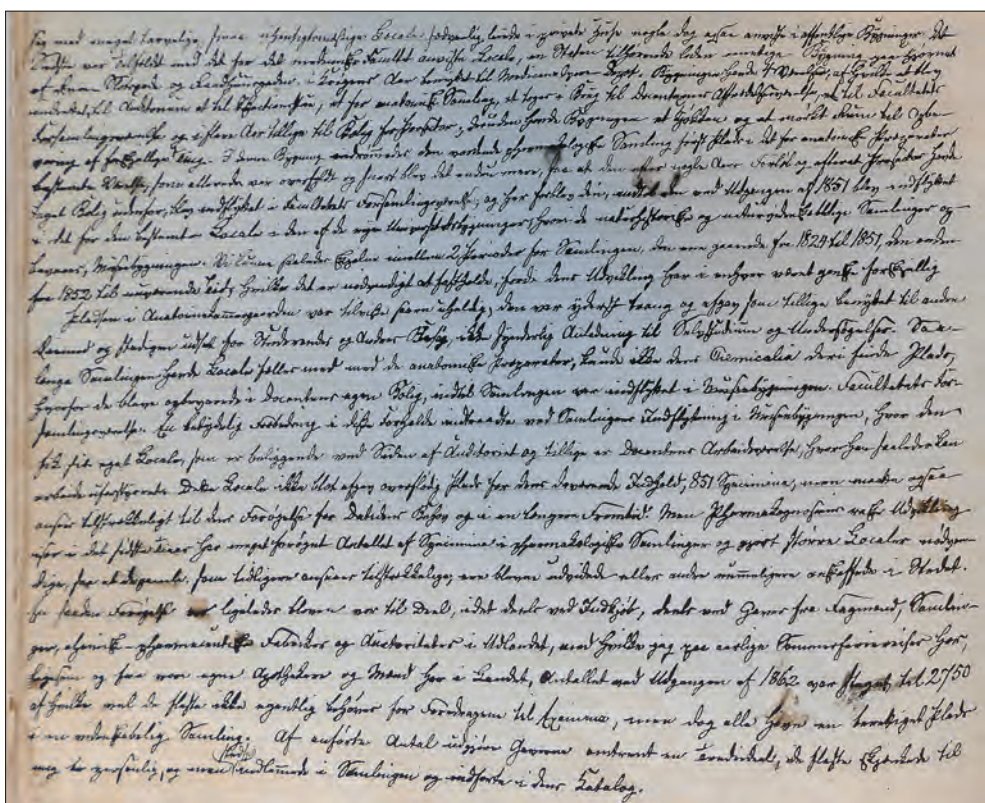 sig med meget tarvelige, frie uhensigtsmæssige Locale sædvanlig leiede i private Huse nogle dog ogsaa anviste i offentlige Bygninger. Det
var tilfældet med det for det medicinske Facultet anviste Locale, en Staten tilhørende liden Bygning paa Hjørnet
af og i Krigens Aar benyttet til Medicin Depot. Bygningen havde 4 Værelser, af hvilke et blev
anvendt til Auditorium et til, et for anatomisk Samling, et toges i Brug til Docenternes, et til Facultets
Forsamlingsværelse og i flere Aar tillige til Bolig for Prosector; desuden havde Bygningen et Kjøkken og et mørkt Rum til Opbe-
varing af forskjellige Ting. I denne Bygning den vordende pharmakologiske Samling først Plads i det for anatomiske Præparater
bestemte Værelse, som allerede var overfyldt og snart blev det endnu mere, saa at den efter nogle Aars Forløb og efterat Prosector havde
taget Bolig udenfor, blev indflyttet i Facultetets Forsamlingsværelse, og her forblev den, indtil den ved Udgangen af 1851 blev indflyttet
i det for den bestemte Locale i den af de nye Universitetsbygninger, hvor de naturhistoriske og naturvidenskabelige Samlinger op-
bevares, Musæbygningen. Vi kunne saaledes skjelne imellem 2 Perioder for Samlingen, den ene gaaende fra 1824 til 1851, den anden
fra 1852 til nuværende Tid, hvilke det er nødvendigt at fastholde, fordi dens Udvikling har i enhver været ganske forskjellig
Pladsen i Anatomikammergaarden var tilvisse heller uheldig, den var yderst trang og afgav som tillige benyttet til andre
og stadigen udsat for Studerendes og Andres Besøg, ikke synderlig Anledning til Selvstudium og Undersøgelser. Saa-
længe Samlingen havde Locale fælles med de anatomiske Præparater, kunde ikke dens Chemicalia deri finde Plads,
hvorfor de bleve opbevarede i Docentens egen Bolig, indtil Samlingen var indflyttet i Musæbygningen. Facultetets For-
samlingsværelse. En betydelig Forbedring i disse Forholde indtraadte ved Samlingens Indflytning i Musæbygningen, hvor den
fik sit eget Locale, som er beliggende ved Siden af Auditoriet og tillige er Docentens Arbeidsværelse, hvor han saaledes kan
arbeide uforstyrret. Dette Locale ikke blot afgav overflødig Plads for dens daværende Indhold, 851 Specimina, men maatte ogsaa
ansees tilstrækkeligt til dens Forøgelse for Datidens Behov og i en længere Fremtid. Men Pharmakognosiens raske Udvikling
i det sidste har meget forøget Antallet af Specimina i pharmakologiske Samlinger og gjort større Localer nødven-
dige, saa at de gamle, som tidligere ansaaes tilstrækkelige, ere blevne udvidede eller andre rummeligere anskaffede i Stedet.
En saadan Forøgelse ligeledes bleven vor til Deel, idet deels ved Indkjøb, deels ved Gaver fra Fagmænd, Samlin-
ger, chemisk-pharmaceutiske Fabriker og Autoriteter i Udlandet, med hvilke jeg paa aarlige Sommerferiereiser har,
og fra vore egne Apothekere og Mænd her i Landet, Antallet ved Udgangen af 1862 var steget til 2750
af hvilke vel de fleste ikke egentlig behøves for Foredragene til Examina, men dog alle have en berettiget Plads
i en videnskabelig Samling. Af anførte Antal udgjøre Gaverne omtrent en Trediedeel, de fleste skjenkede til
mig personlig, og men indlemmede i Samlingen og indførte i dens Katalog.